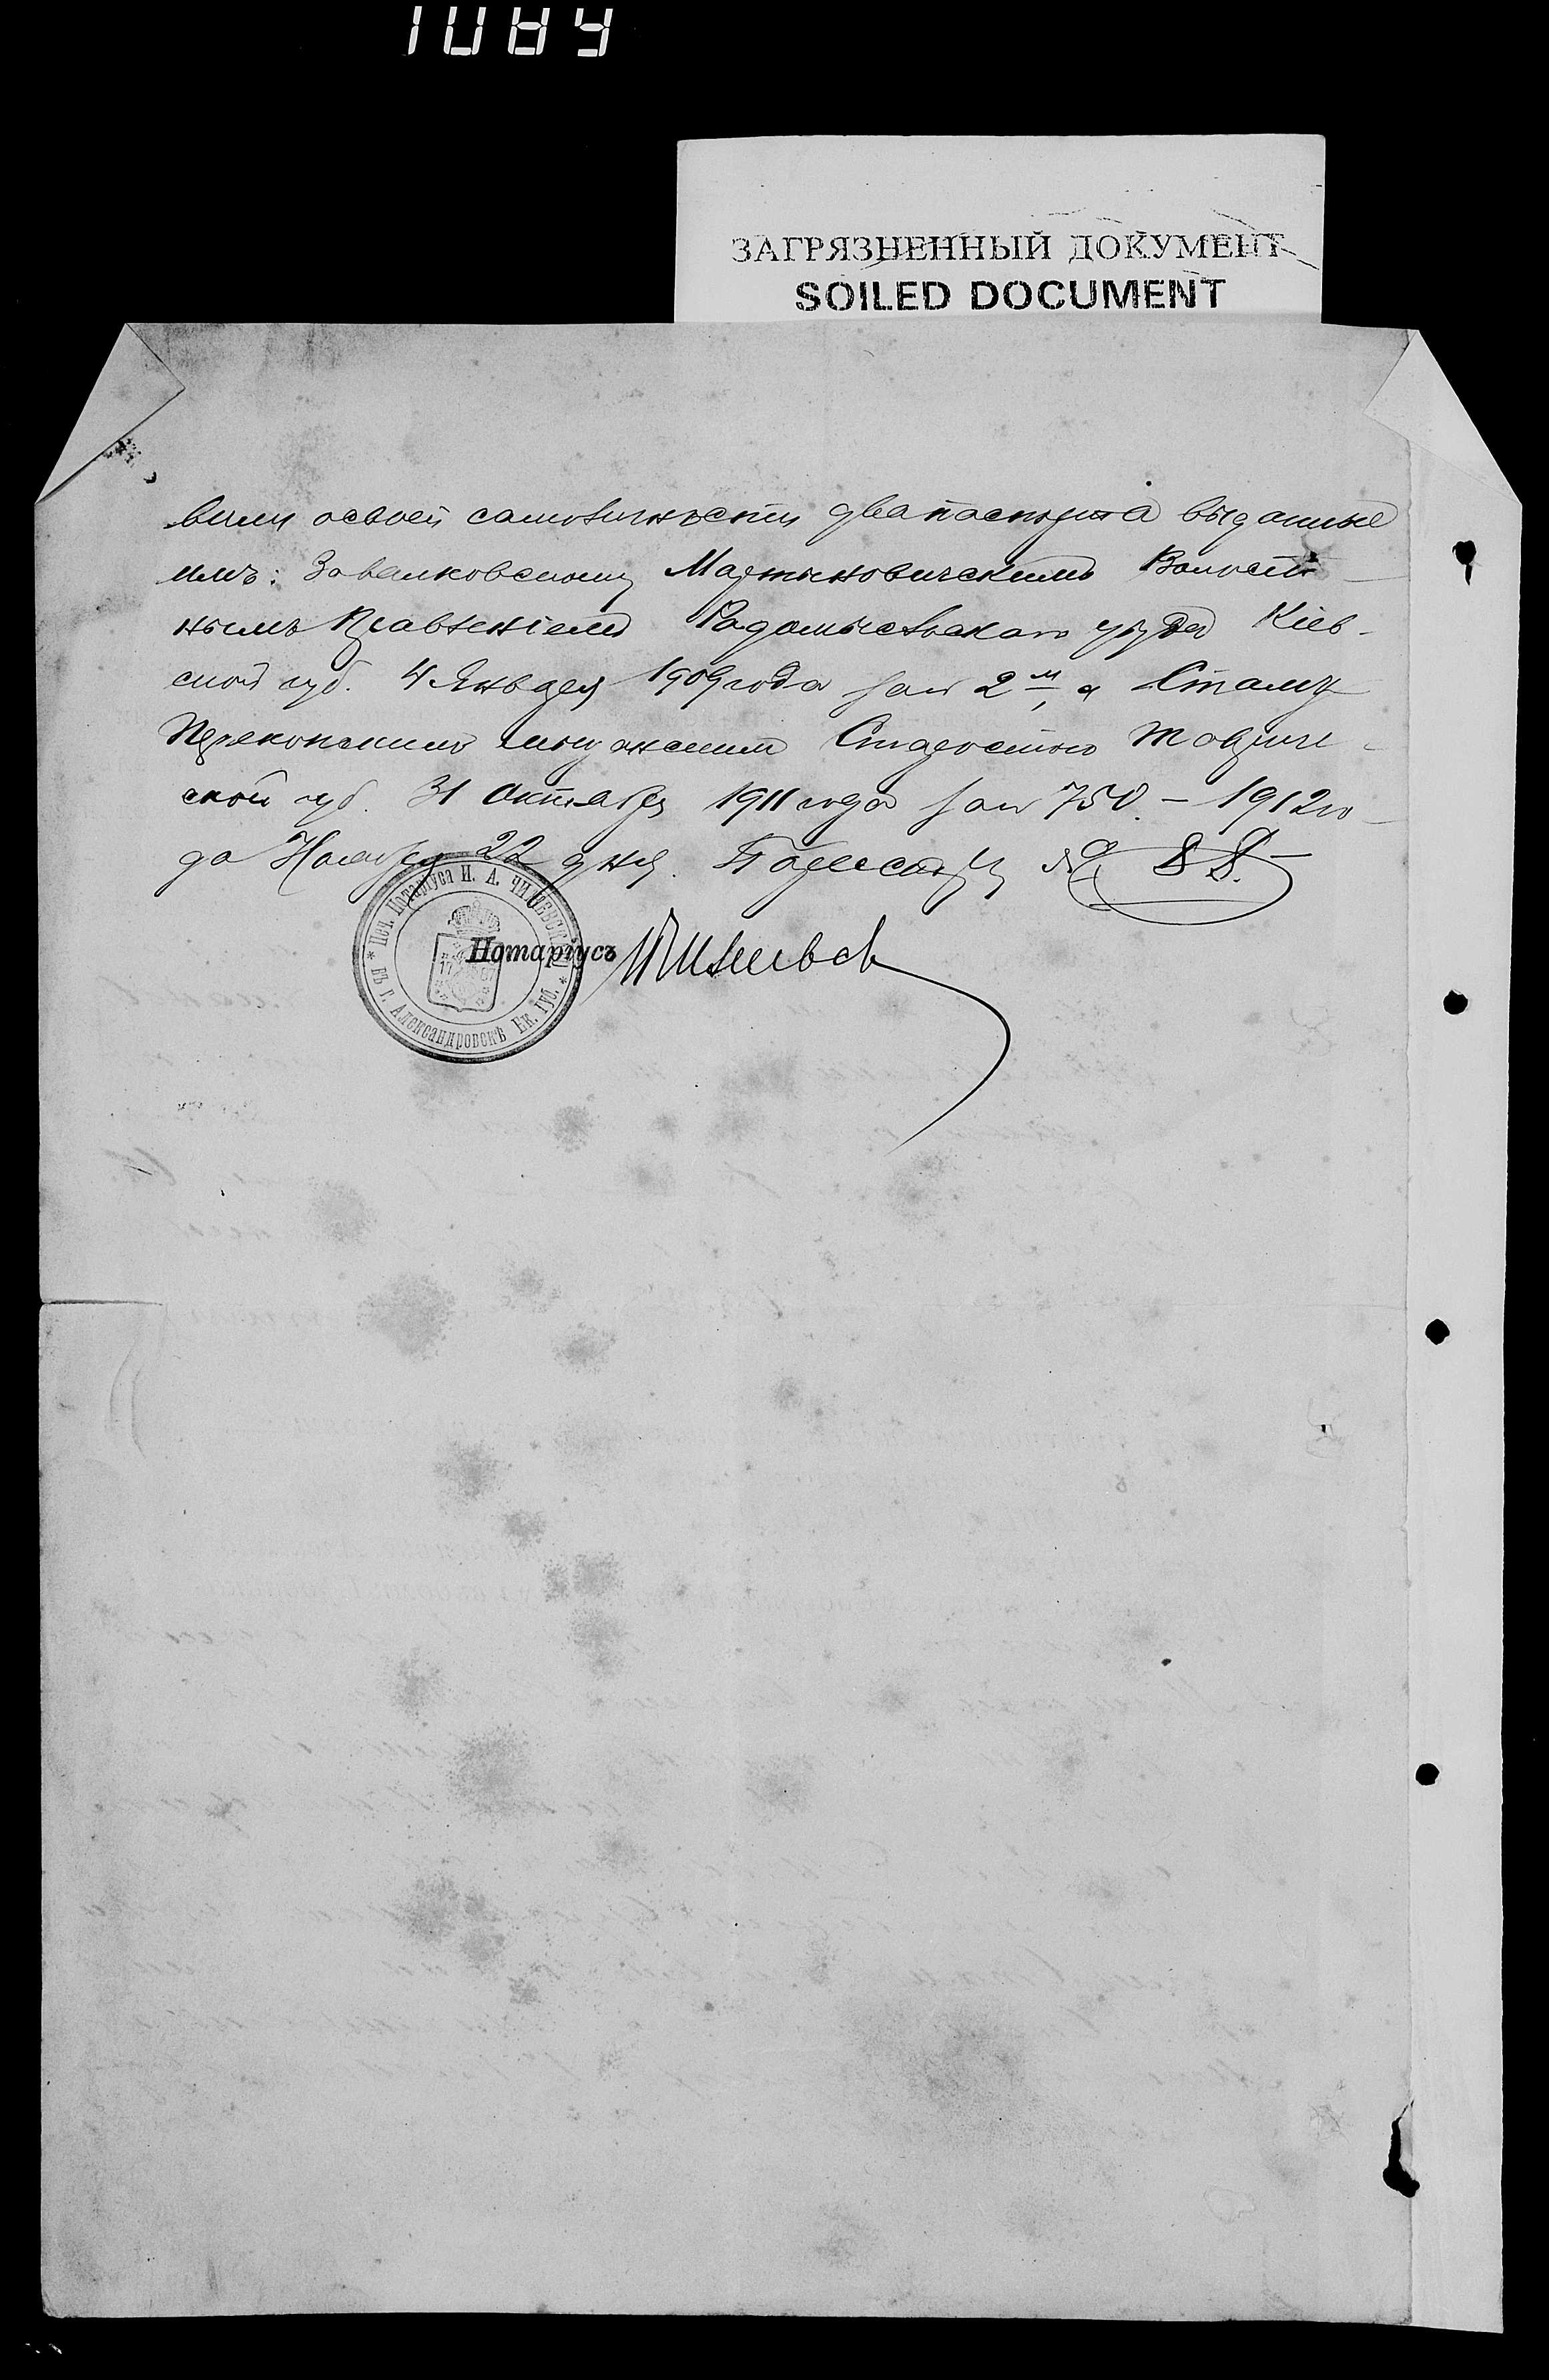 1089
ЗАГРЯЗНЕННЫЙ ДОКУМЕНТ
SOILED DOCUMENT
вили о своей самоличности два паспорта выданные
имъ: Завалковскому Мартыновическимъ Волост-
нымъ Правленіемъ Радомысльскаго уѣзда Кіев-
ской губ. 4 Января 1909 года за № 2 м, а Сталу
Перекопскимъ Старостою Таврич-
ской губ. 31 Октября 1911 года за № 750. – 1912 го-
да Ноября 22 дня. По реестру № 88.
Нотаріусъ
* Печ. Нотаріуса И. А.
въ г. Александровскѣ Ек. губ. *